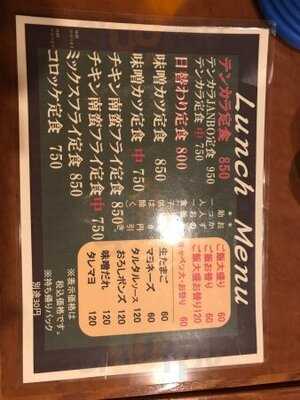 Lunch Menu
テンカラ定食 850
テンカラJANBO定食 950
テンカラ定食 中 750
日替わり定食 800
味噌カツ定食 850
味噌カツ定食 中 750
チキン南蛮フライ定食 850
チキン南蛮フライ定食 中 750
ミックスフライ定食 850
コロッケ定食 750
ご飯大盛り 60
ご飯お替り 60
ご飯大盛お替り 120
生たまご 60
マヨネーズ 60
タルタルソース 120
おろしポンズ 120
味噌だれ 120
タレマヨ 120
※表示価格は
税込価格です。
※持ち帰りパック
別途30円